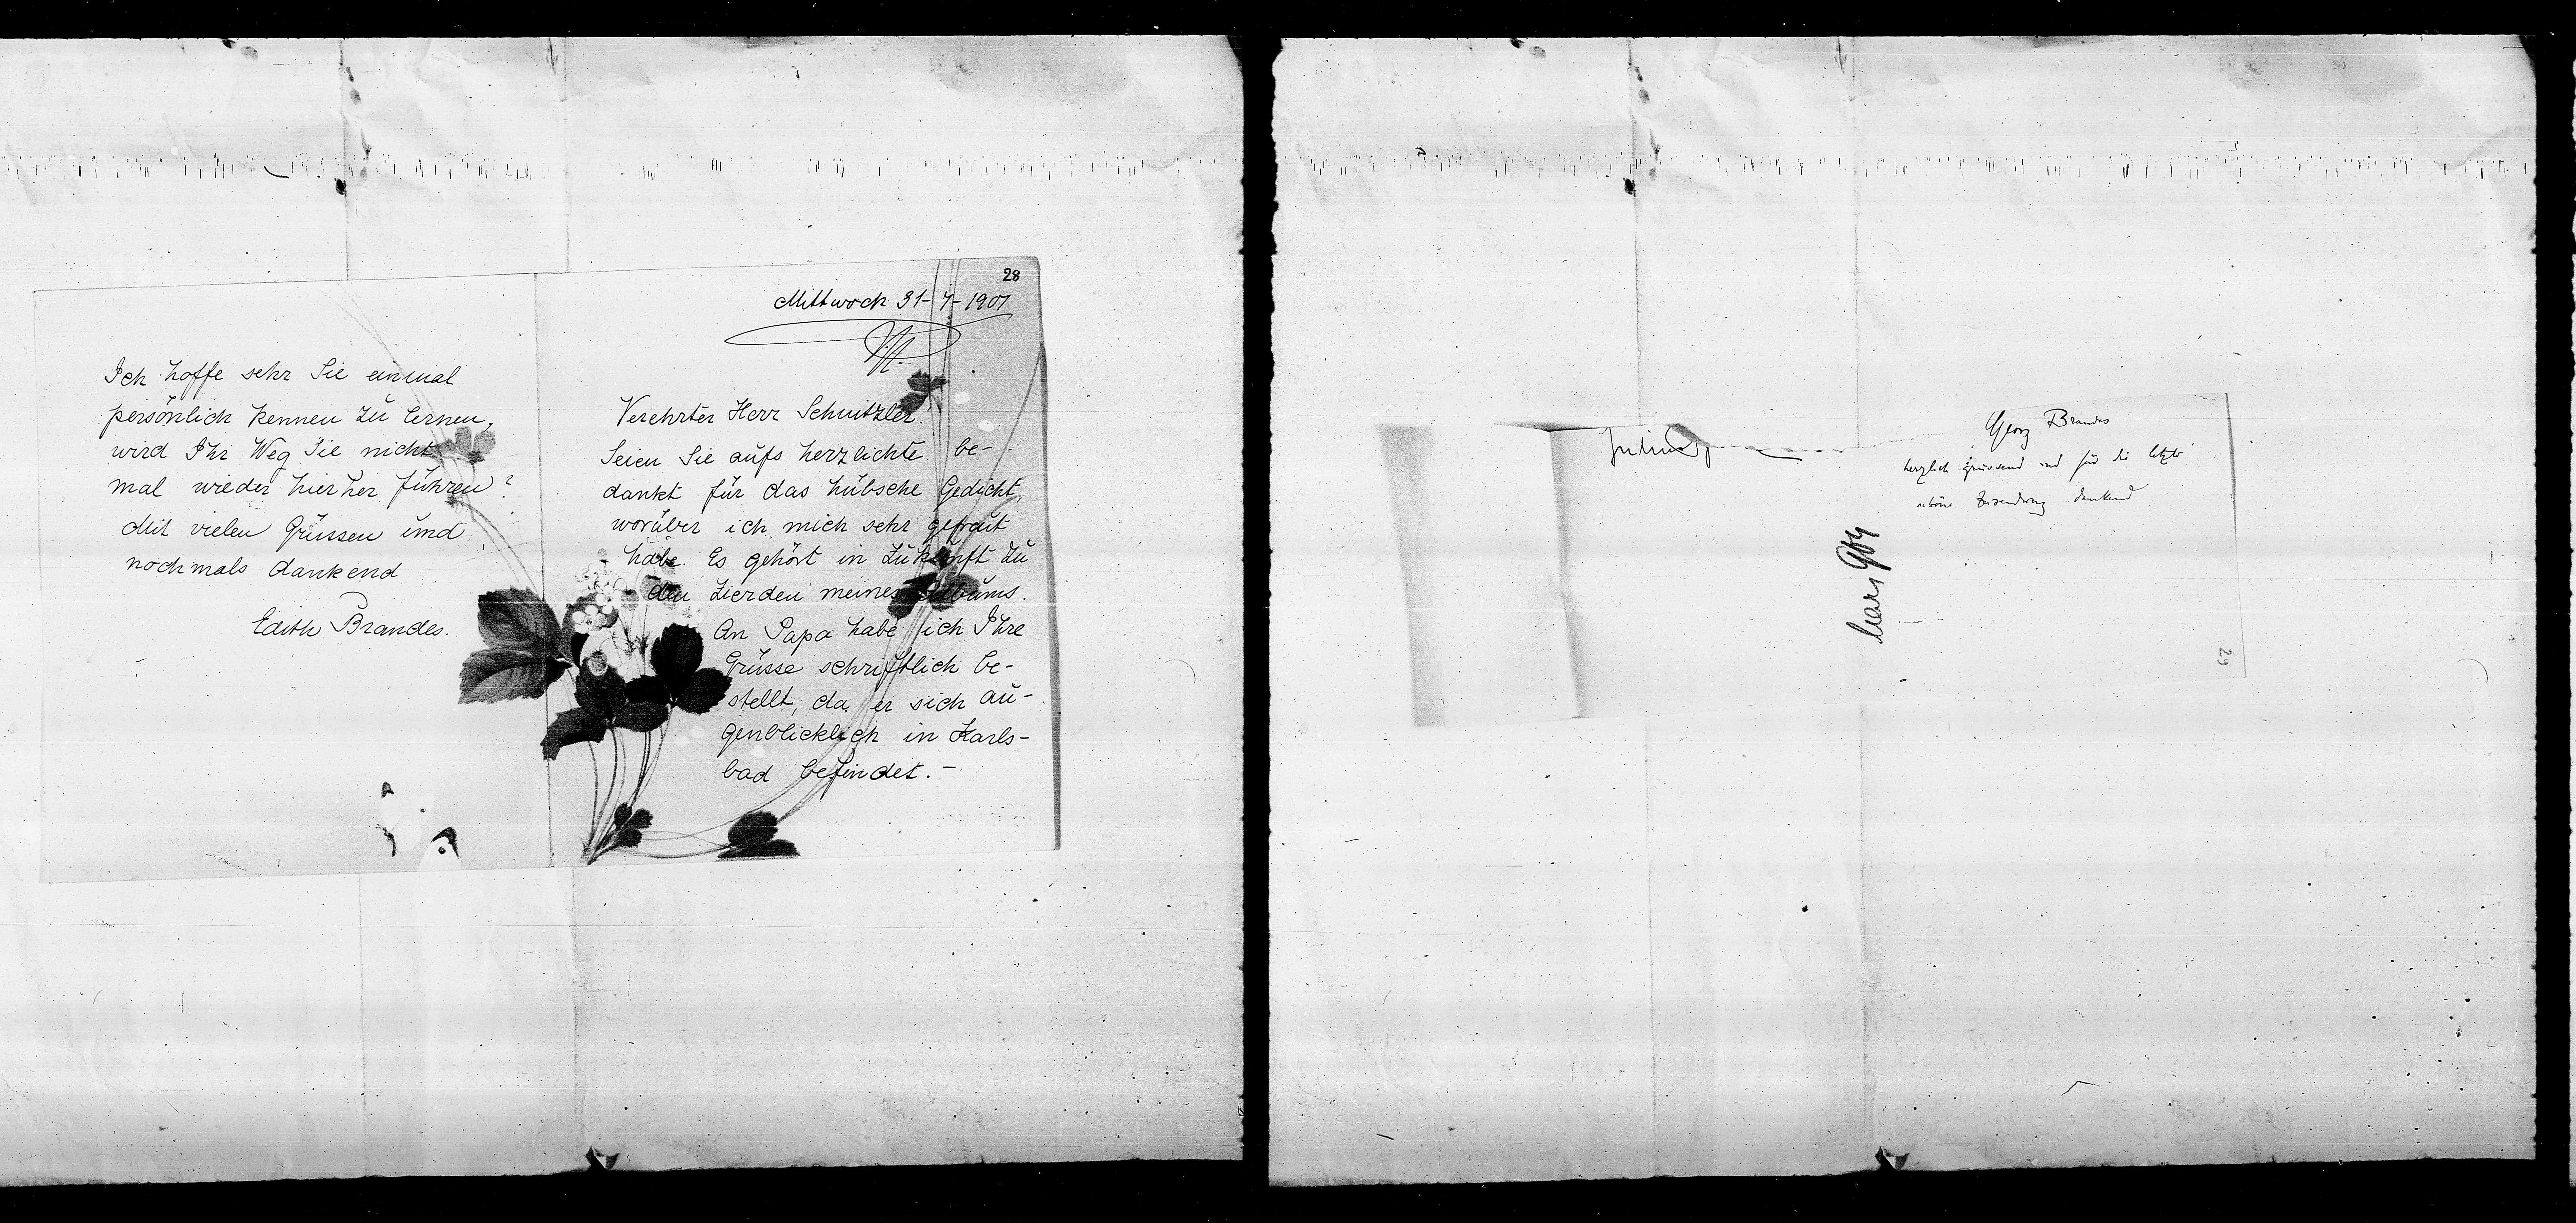 28
Mittwoch 31-7-1901
Verehrter Herr Schnitzler!
Seien Sie aufs herzlichte be-
dankt für das hübsche Gedicht,
worüber ich mich sehr gefreut
habe. Es gehört in Zukunft zu
den Zierden meines Albums.
An Papa habe ich Ihre
Grüsse schriftlich be-
stellt, da er sich au-
genblicklich in Karls-
bad befindet.-
Ich hoffe sehr Sie einmal
persönlich kennen zu lernen,
wird Ihr Weg Sie nicht
mal wieder hierher führen?
Mit vielen Grüssen und
nochmals dankend
Edith Brandes.
Georg Brandes
herzlich grüssend und für die letzte
schöne Zusendung dankend
März 904
29